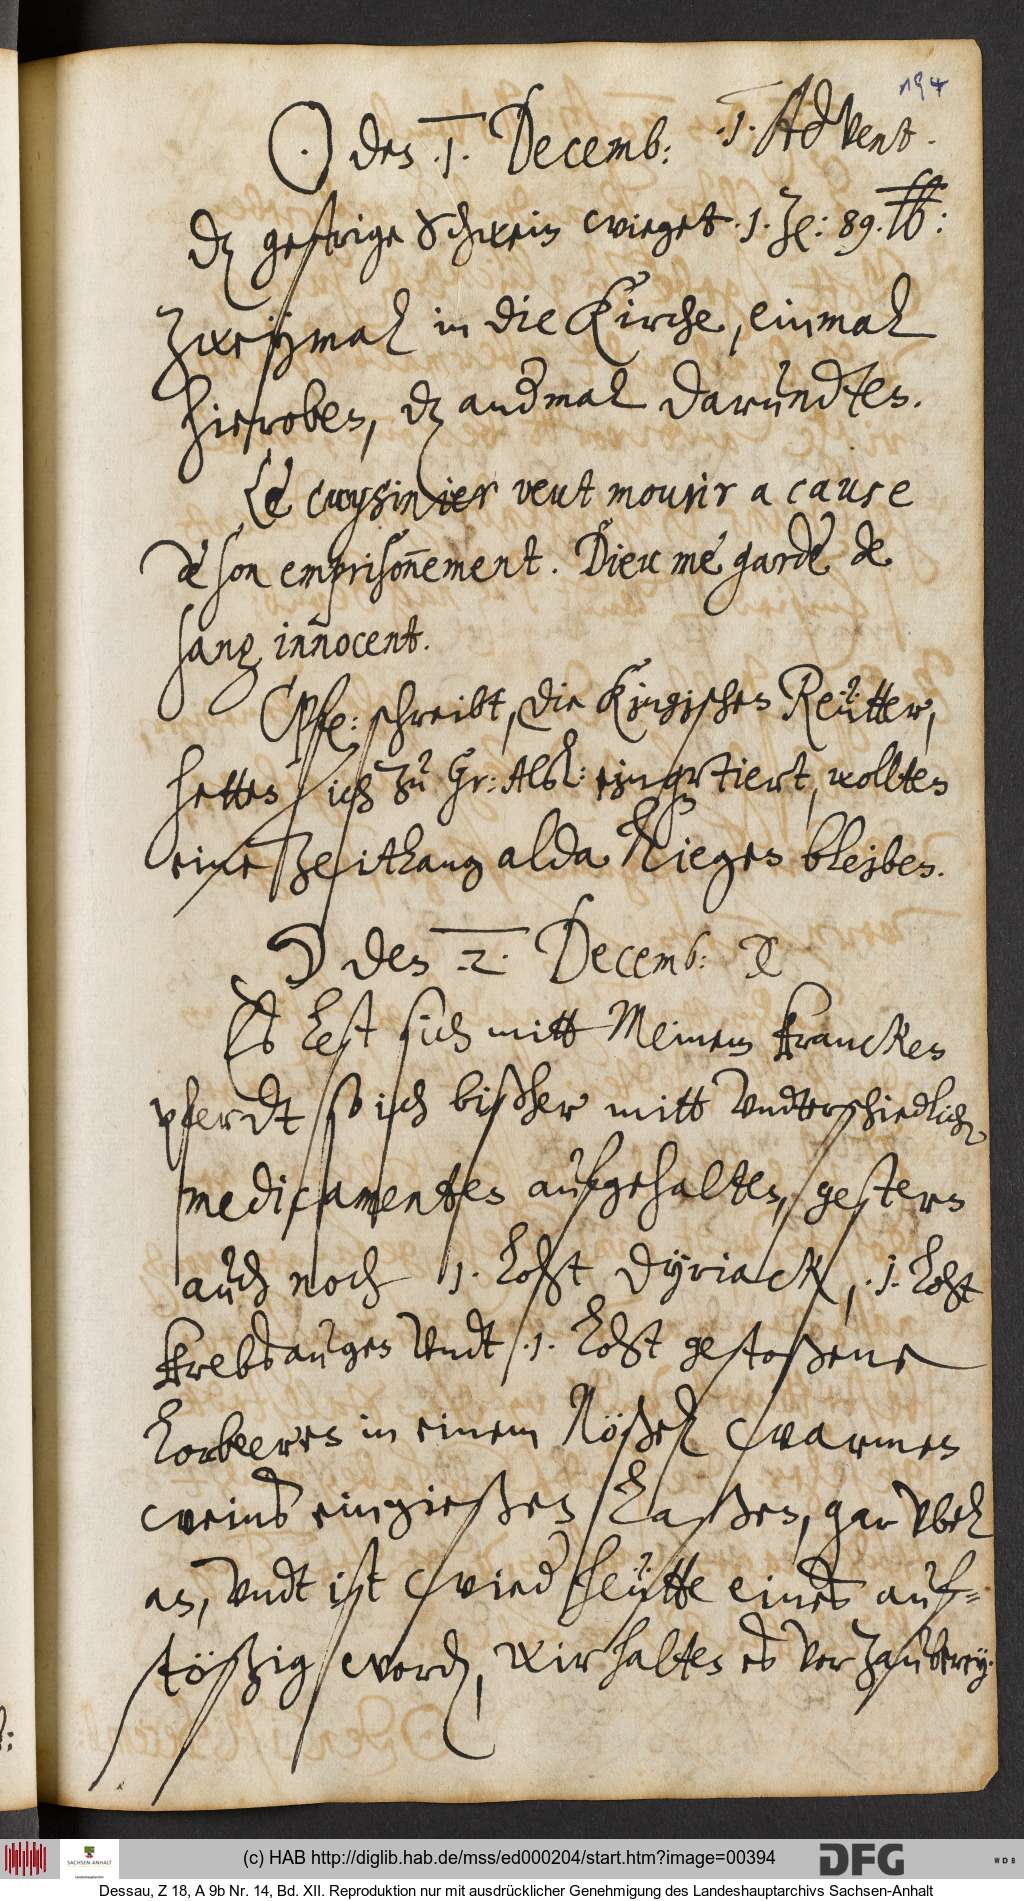 194
☉ den .1. Decemb: .1. Advent.
dz gestrige Schwein wieget .1. Ze: 89. lb:
Zweÿmal in die Kirche, einmal
hieroben, dz andmal darundten.
Le cuysinier veut mourir a cause
de son emprisoñement. Dieu me garde de
sang iñocent.
Pfe: schreibt, die Kÿngischen Reütter,
hetten sich zu Gr: Alsl: einqrtiert, wollten
eine Zeitlang alda liegen bleiben.
☽ den .2. Decemb:
Es lest sich mitt Meinem krancken
pferdt so ich bißher mitt Vndterschiedlichen
medicamenten aufgehalten, gestern
auch noch 1. Loht Dÿriack, .1. Loht
krebsaugen Vndt .1. Loht gestoßene
Lorbeeren in einem Nößel warmen
weins eingießen laßen, gar Vbel
an, Vndt ist wied heütte eins auf-
stößzig word, wir halten es Vor Zauberey.
(c) HAB http://diglib.hab.de/mss/ed000204/start.htm?image=00394
SACHSEN-ANHALT
DFG
WDB
Dessau, Z 18, A 9b Nr. 14, Bd. XII. Reproduktion nur mit ausdrücklicher Genehmigung des Landeshauptarchivs Sachsen-Anhalt